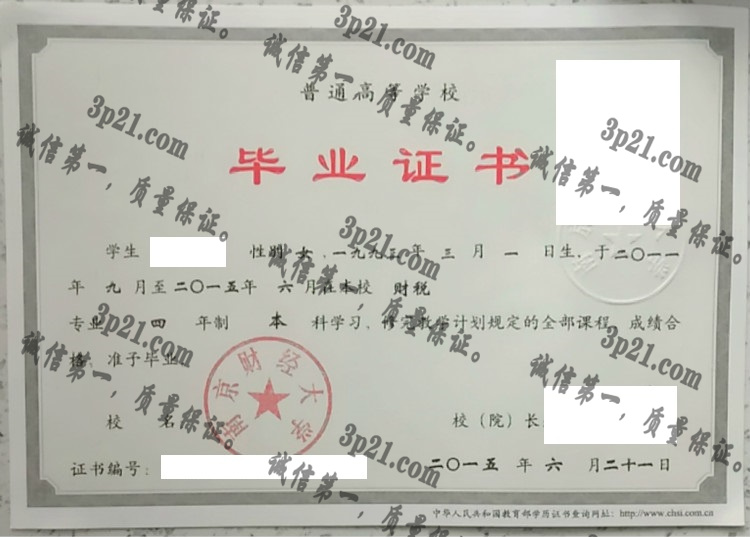 普通高等学校
毕业证书
学生 性别 女，一九九三年 三 月 一 日生，于二〇一一
年 九 月至二〇一五年 六 月在本校 财税
专业 四 年制 本 科学习，修完教学计划规定的全部课程，成绩合
格，准予毕业。
校 名
校（院）长
南京财经大学
证书编号：
二〇一五 年 六 月二十一日
中华人民共和国教育部学历证书查询网址：http://www.chsi.com.cn
3p21.com
诚信第一，质量保证。
3p21.com
诚信第一，质量保证。
3p21.com
诚信第一，质量保证。
3p21.com
诚信第一，质量保证。
3p21.com
诚信第一，质量保证。
3p21.com
诚信第一，质量保证。